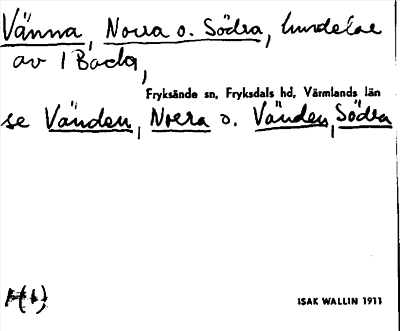 Vänna, Norra o. Södra, hundelar
av 1 Backa,
Fryksände sn, Fryksdals hd, Värmlands län
se Vänden, Norra o. Vänden, Södra
ISAK WALLIN 1911